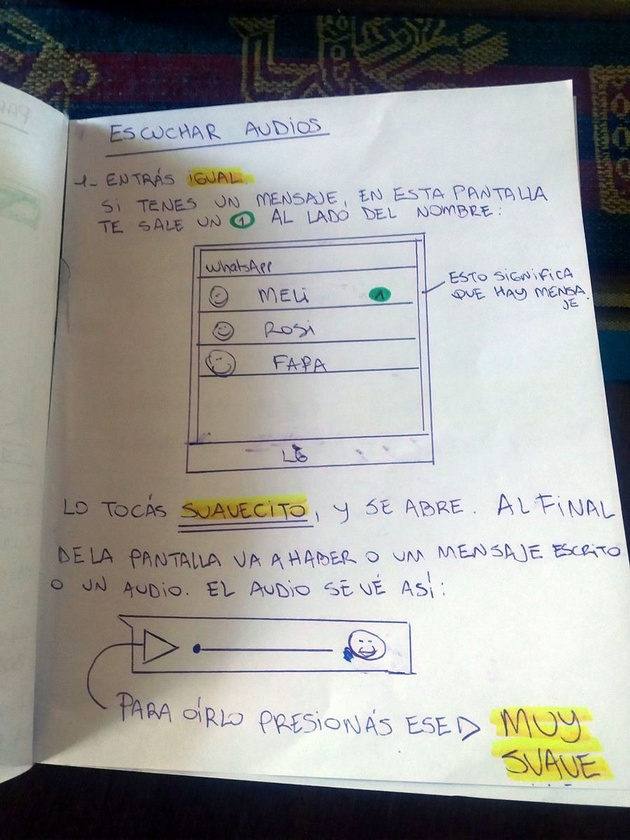 ESCUCHAR AUDIOS
1- ENTRÁS IGUAL.
SI TENES UN MENSAJE, EN ESTA PANTALLA
TE SALE UN 1 AL LADO DEL NOMBRE:
WhatsApp
MELI 1
ROSI
FAPA
LG
ESTO SIGNIFICA
QUE HAY MENSA
JE.
LO TOCÁS SUAVECITO, Y SE ABRE. AL FINAL
DE LA PANTALLA VA A HABER O UM MENSAJE ESCRITO
O UN AUDIO. EL AUDIO SE VÉ ASÍ:
PARA OÍRLO PRESIONÁS ESE ▷ MUY
SUAVE